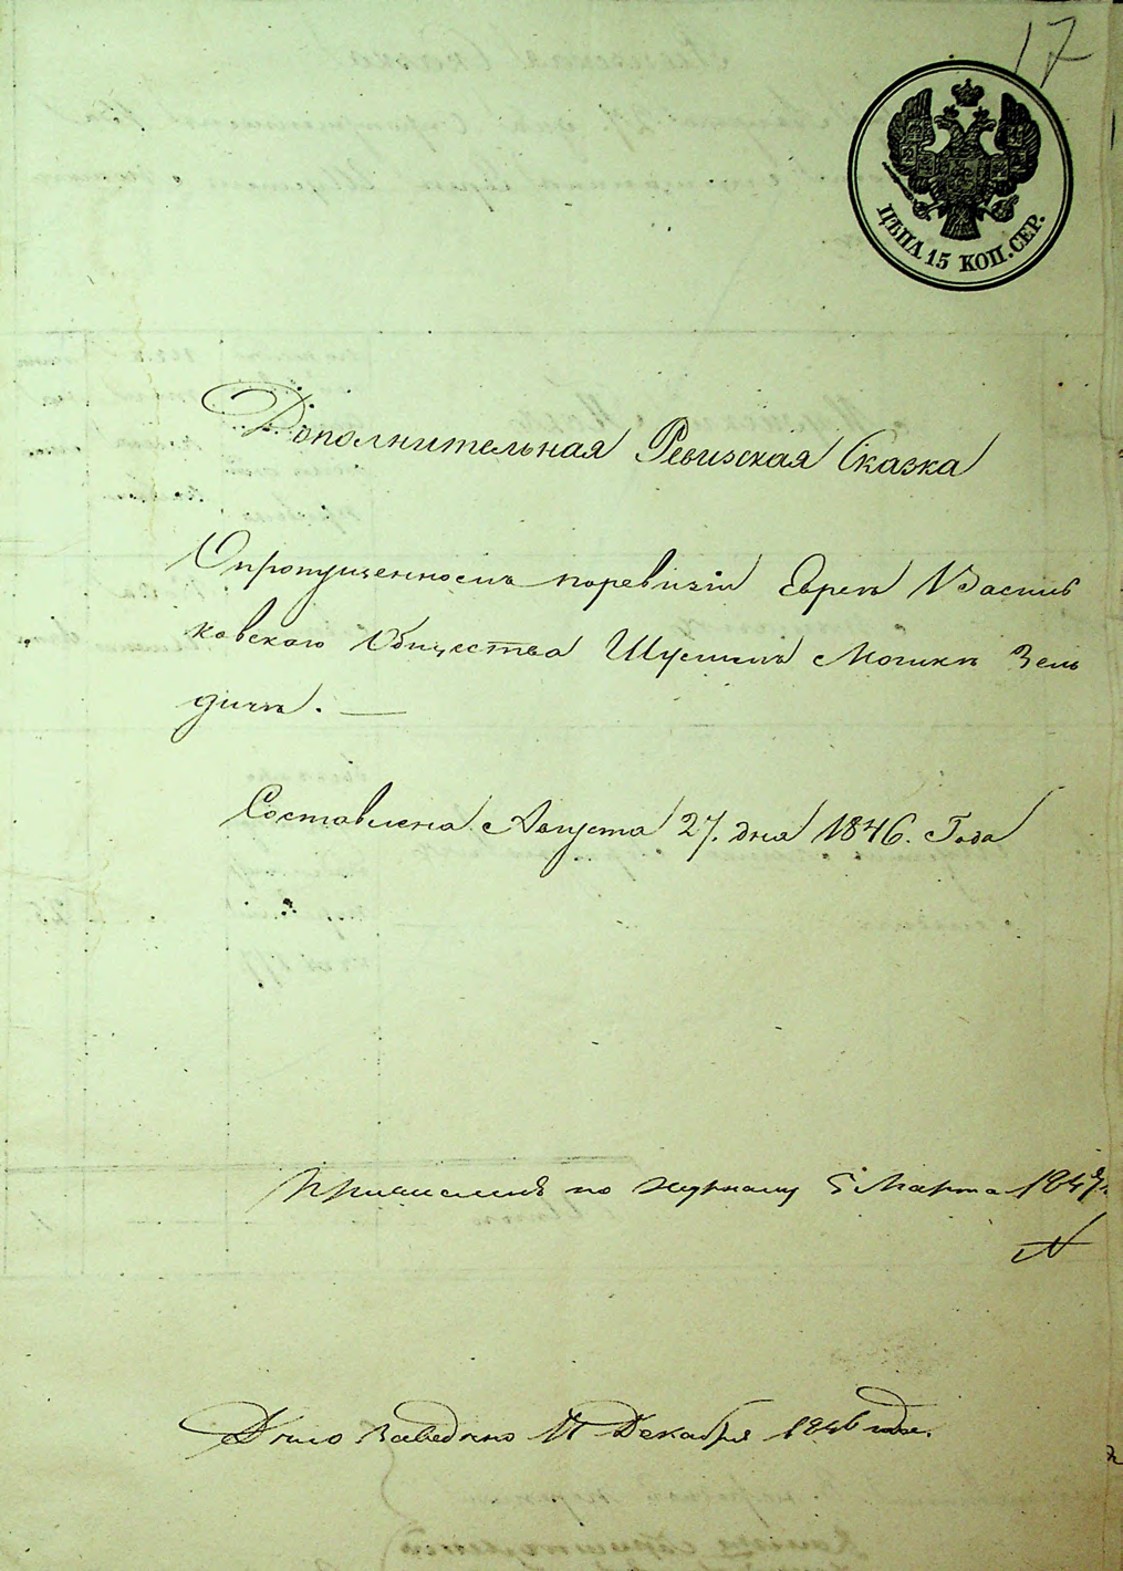 17
ЦѢНА 15 КОП. СЕР.
Дополнительная Ревизская Сказка
О пропущенномъ поревизіи Еврєѣ Василь
ковского Общества Шусшелъ Мошкѣ Зель
дичѣ. —
Составлена Августа 27. дня 1846. Года
Причисленъ по журналу 5 Марта 1847
Дѣло Заведено 11 Декабря 1846 года.